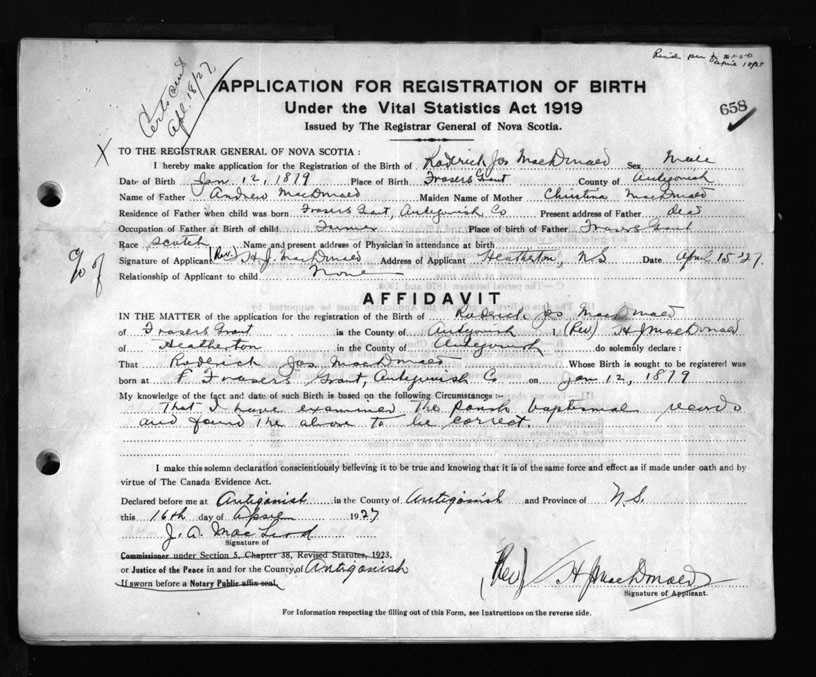 April 18/27
Certs sent
Apl. 18/27
APPLICATION FOR REGISTRATION OF BIRTH
Under the Vital Statistics Act 1919
Issued by The Registrar General of Nova Scotia.
658
X
TO THE REGISTRAR GENERAL OF NOVA SCOTIA:
I hereby make application for the Registration of the Birth of Roderick Jos MacDonald Sex Male
Date of Birth Jan 12, 1879 Place of Birth Frasers Grant County of Antigonish
Name of Father Andrew MacDonald Maiden Name of Mother Christina MacDonald
Residence of Father when child was born Frasers Grant, Antigonish Co Present address of Father dead
Occupation of Father at Birth of child Farmer Place of birth of Father Frasers Grant
Race Scotch Name and present address of Physician in attendance at birth
Signature of Applicant (Rev.) H.J. MacDonald Address of Applicant Heatherton, N.S Date April 15 '27.
% of
Relationship of Applicant to child None
AFFIDAVIT
IN THE MATTER of the application for the registration of the Birth of Roderick Jos MacDonald
of Frasers Grant in the County of Antigonish I, (Rev) H J MacDonald
of Heatherton in the County of Antigonish do solemnly declare:
That Roderick Jos MacDonald Whose Birth is sought to be registered was
born at F Frasers Grant, Antigonish Co on Jan 12, 1879
My knowledge of the fact and date of such Birth is based on the following Circumstances:-
That I have examined the parish baptismal records
and found the above to be correct.
I make this solemn declaration conscientiously believing it to be true and knowing that it is of the same force and effect as if made under oath and by
virtue of The Canada Evidence Act.
Declared before me at Antigonish in the County of Antigonish and Province of N.S.
this 16th day of April 1927
J. A. MacLeod
Signature of
Commissioner under Section 5, Chapter 38, Revised Statutes, 1923.
or Justice of the Peace in and for the County, of Antigonish
If sworn before a Notary Public affix seal.
(Rev) H J MacDonald
Signature of Applicant.
For Information respecting the filling out of this Form, see Instructions on the reverse side.